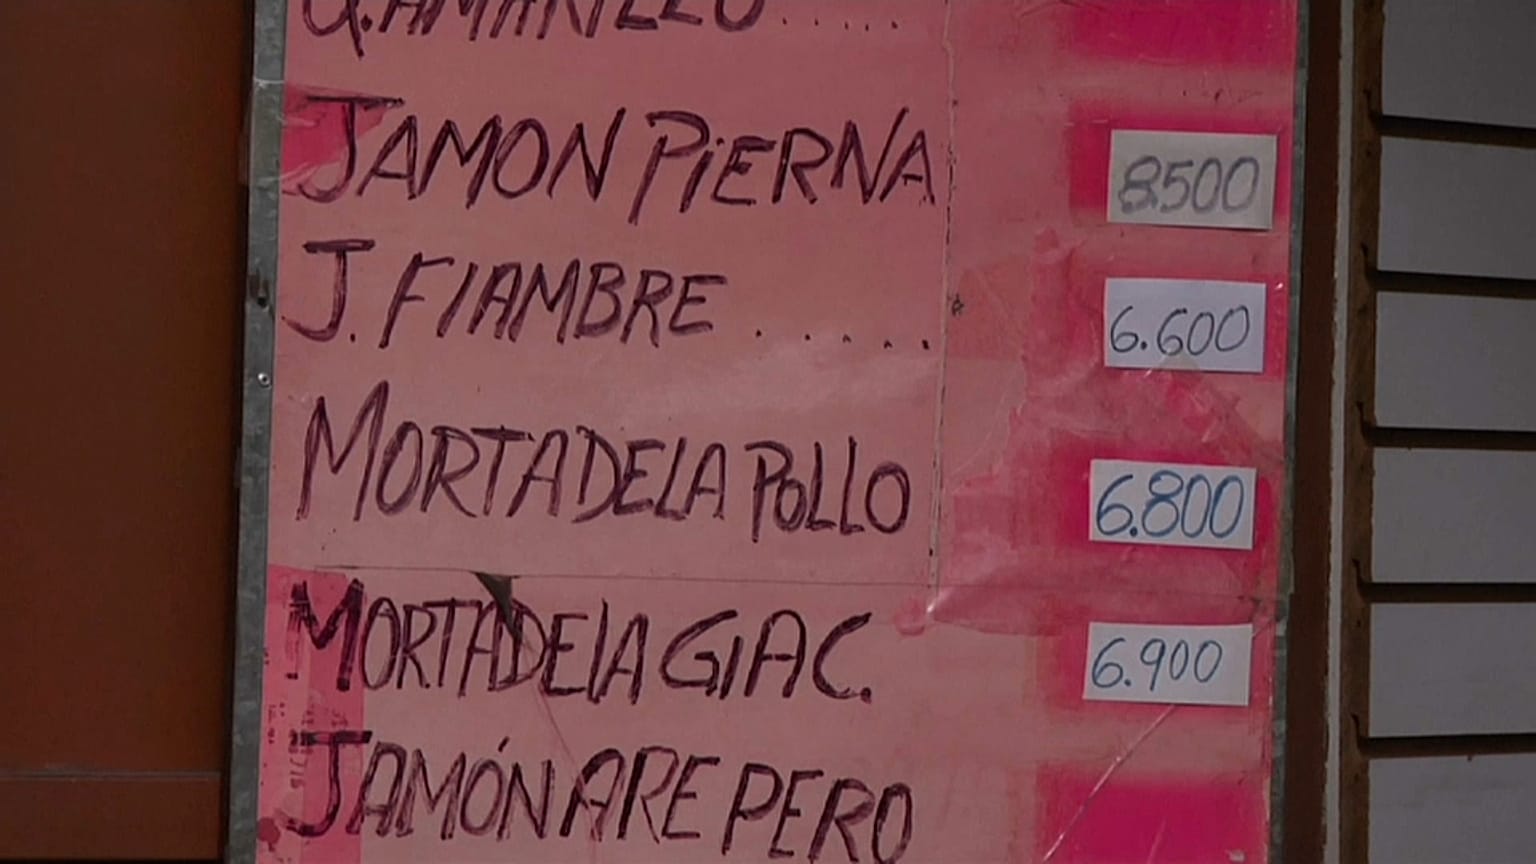 Q.AMARILLO.....
JAMON PiERNA 8.500
J. FIAMBRE ..... 6.600
MORTADELA POLLO 6.800
MORTADElA GIAC. 6.900
JAMÓN AREPERO